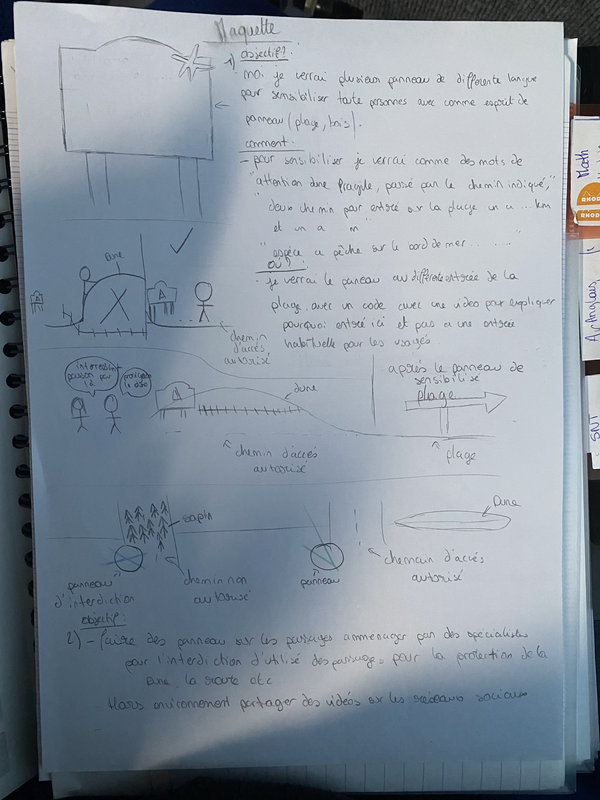 Maquette
1) objectif :
moi je verrai plusieur panneau de differente langue
pour sensibiliser toute personnes avec comme esprit de
panneau (plage, bois).
comment :
- pour sensibiliser je verrai comme des mots de
"attention dune fragile, passé par le chemin indiqué,"
"deux chemin pour entrée sur la plage un a ... km
et un a ... m"
"espèce a pêche sur le bord de mer ........"
où ?
- je verrai le paneau au différente entrée de la
plage avec un code avec une video pour expliquer
pourquoi entré ici et pas a une entrée
habituelle pour les usagés
dune
chemin
d'accés
autorisé
interressent
passon par
là
protegeon
la dune
dune
chemin d'accés
autorisé
après le panneau de
sensibilisé
plage
plage
sapin
Dune
panneau
d'interdiction
chemin non
autorisé
panneau
chemain d'accés
autorisé
objectif :
2) - faire des panneau sur les passages ammenager par des spécialistes
pour l'interdiction d'utilisé des passages pour la protection de la
dune, la route etc
partager des vidéos sur les reseaux sociaux
Math
Anglais
SNT
RHOD